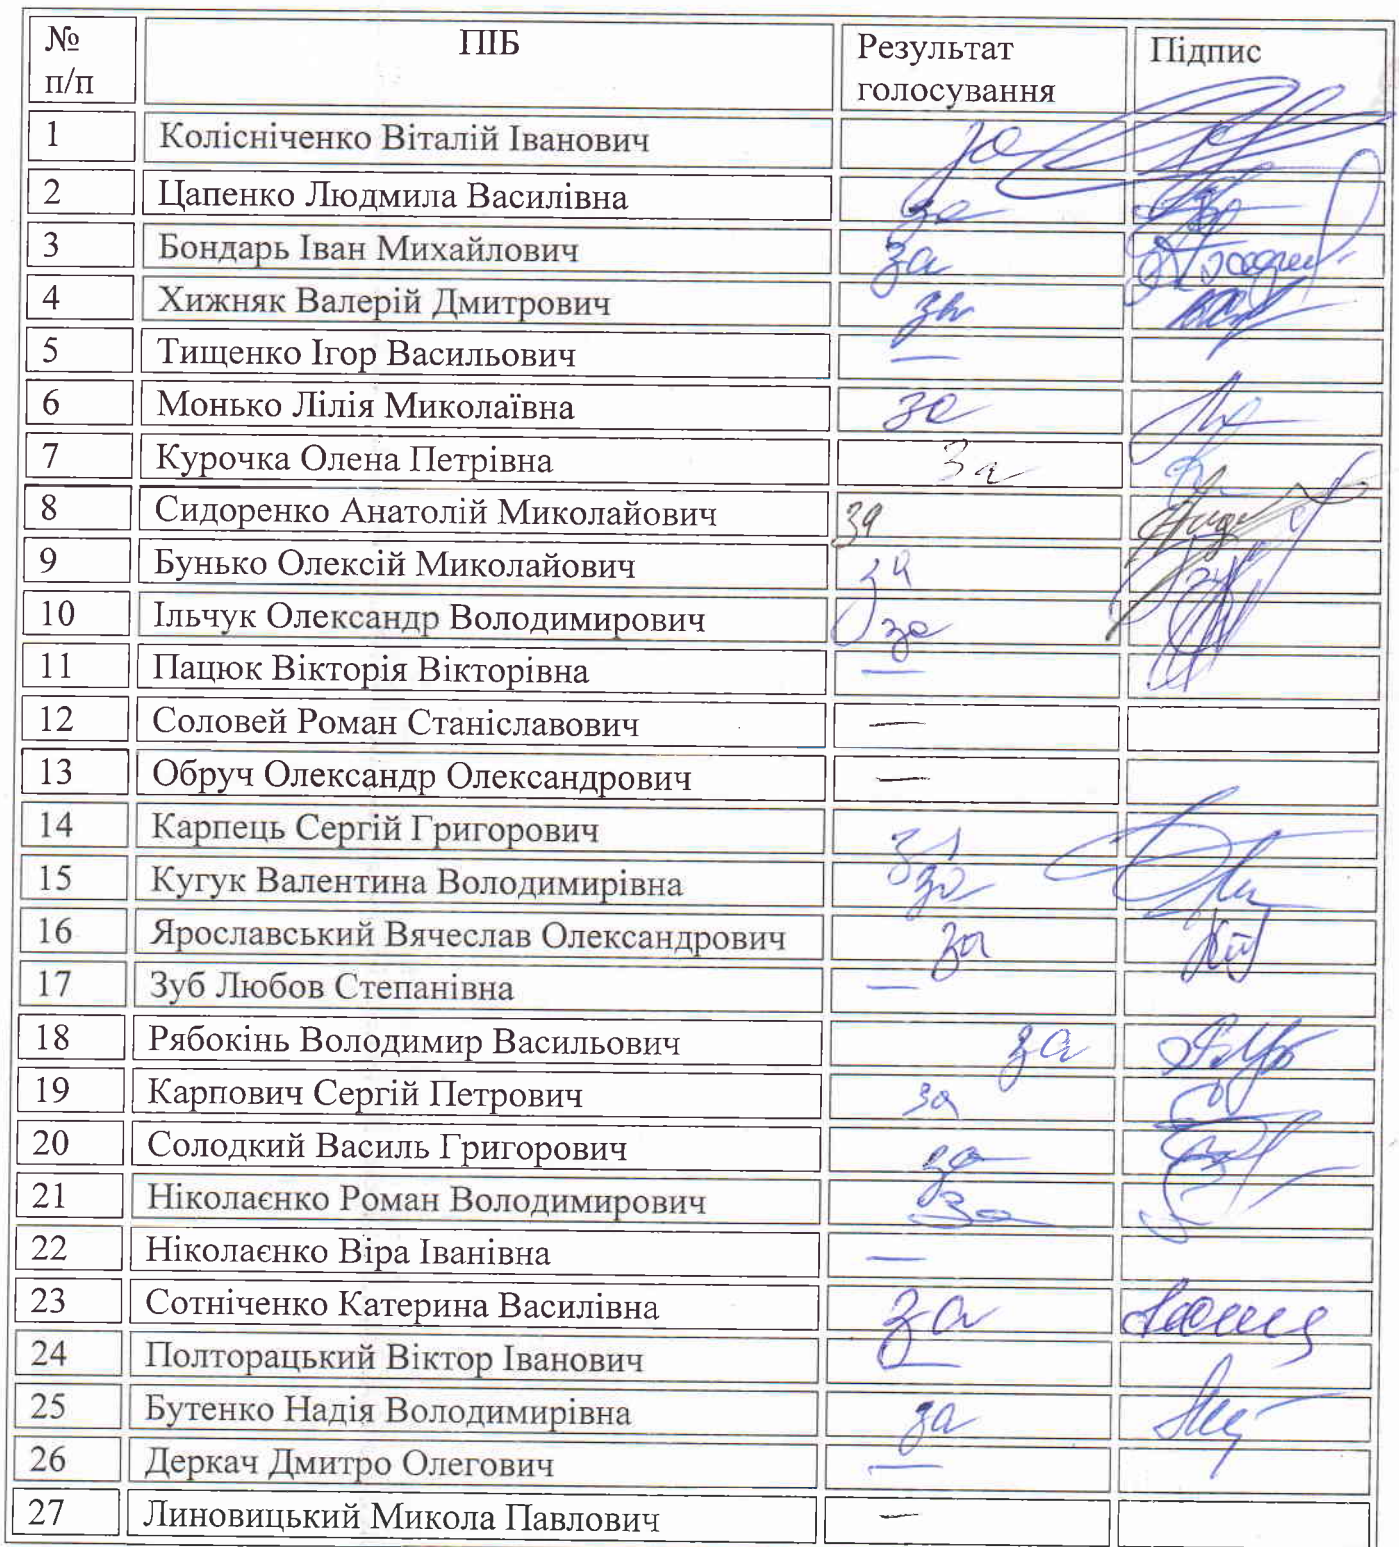 № п/п ПІБ Результат голосування Підпис
1 Колісніченко Віталій Іванович за
2 Цапенко Людмила Василівна за
3 Бондарь Іван Михайлович за
4 Хижняк Валерій Дмитрович за
5 Тищенко Ігор Васильович —
6 Монько Лілія Миколаївна за
7 Курочка Олена Петрівна за
8 Сидоренко Анатолій Миколайович за
9 Бунько Олексій Миколайович за
10 Ільчук Олександр Володимирович за
11 Пацюк Вікторія Вікторівна —
12 Соловей Роман Станіславович —
13 Обруч Олександр Олександрович —
14 Карпець Сергій Григорович за
15 Кугук Валентина Володимирівна за
16 Ярославський Вячеслав Олександрович за
17 Зуб Любов Степанівна —
18 Рябокінь Володимир Васильович за
19 Карпович Сергій Петрович за
20 Солодкий Василь Григорович за
21 Ніколаєнко Роман Володимирович за
22 Ніколаєнко Віра Іванівна —
23 Сотніченко Катерина Василівна за
24 Полторацький Віктор Іванович —
25 Бутенко Надія Володимирівна за
26 Деркач Дмитро Олегович —
27 Линовицький Микола Павлович —